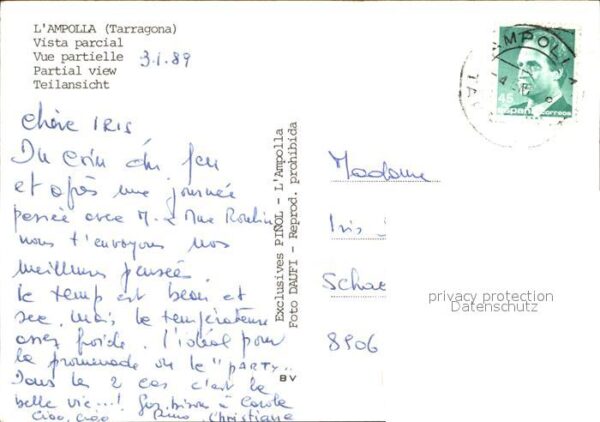 L'AMPOLLA (Tarragona)
Vista parcial
Vue partielle
Partial view
Teilansicht
3.1.89
Chère IRIS
Du coin du feu
et après une journée
passée avec M. & Mme
nous t'envoyons nos
meilleurs pensées
le temp est beau et
sec, mais la température
assez froide. l'idéal pour
la promenade ou le "PARTY"
Dans les 2 cas c'est la
belle vie...! Gros bisou à Carole
Ciao, ciao Christiane
Exclusives PIÑOL - L'Ampolla
Foto DAUFI - Reprod. prohibida
BV
AMPOLLA
45
España correos
Madame
Iris
8906
privacy protection
Datenschutz